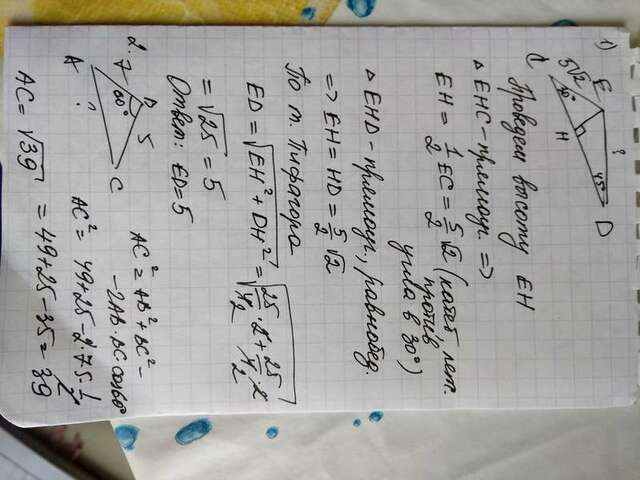 1)
E
5√2
?
C
30°
H
45°
D
Проведем высоту EH
△ EHC - прямоуг. =>
EH = 1/2 EC = 5/2 √2 (катет леж.
против
угла в 30°)
△ EHD - прямоуг, равнобед.
=> EH = HD = 5/2 √2
По т. Пифагора
ED = √EH² + DH² = √25/4₂ · 2 + 25/4₂ · 2
= √25 = 5
Ответ: ED = 5
2.
7
B
5
60°
A
?
C
AC² = AB² + BC² -
- 2AB · BC · cos60°
AC² = 49 + 25 - 2 · 7 · 5 · 1/2
= 49 + 25 - 35 = 39
AC = √39